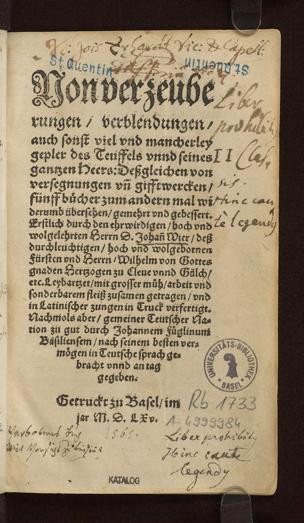 St quentin
St quentin
Von verzeube
rungen / verblendungen /
auch sonst viel vnd mancherley
gepler des Teuffels vnnd seines
gantzen Heers: Deßgleichen von
versegnungen vñ gifftwercken /
fünff bücher zum andern mal wi
derumb übersehen / gemehrt vnd gebessert.
Erstlich durch den ehrwirdigen / hoch vnd
wolgelehrten Herrn D. Johañ Wier / deß
durchleuchtigen / hoch vnd wolgebornen
Fürsten vnd Herrn / Wilhelm von Gottes
gnaden Hertzogen zu Cleue vnnd Gülch /
etc. Leybartzet / mit grosser müh / arbeit vnd
sonderbarem fleiß zusamen getragen / vnd
in Latinischer zungen in Truck verfertigt.
Nachmols aber / gemeiner Teutscher Na-
tion zu gut durch Johannem Füglinum
Basiliensem / nach seinem besten ver-
mögen in Teutsche sprach ge-
bracht vnnd an tag
gegeben.
Getruckt zu Basel / im
jar M. D. LXv.
Liber
prohibity
II Clas
sis.
Hinc caute
legendy
UNIVERSITÄTS-BIBLIOTHEK
BASEL
Rb 1733
A-4999984
1565.
Liber prohibity
Hinc caute
legendy
KATALOG